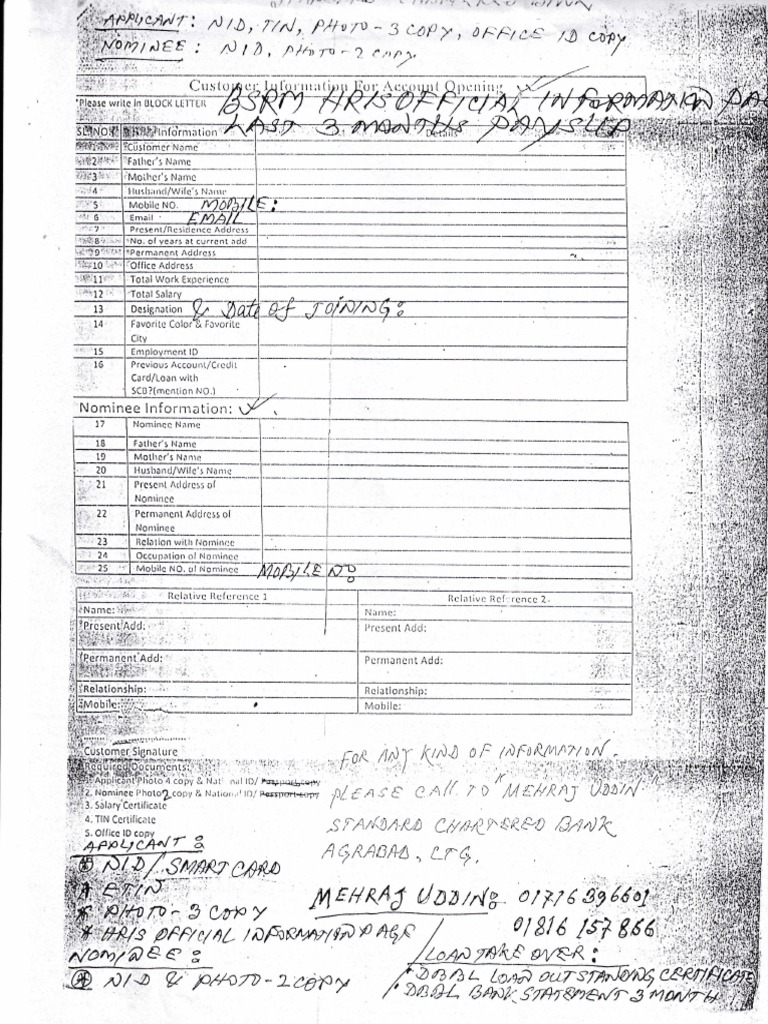 APPLICANT: NID, TIN, PHOTO-3COPY, OFFICE ID COPY
NOMINEE: NID, PHOTO-2 COPY
Customer Information For Account Opening
*Please write in BLOCK LETTER BSRM HRIS OFFICIAL INFORMATION PA
LAST 3 MONTHS PAYSLIP
SL NO Information Details
1 Customer Name
2 Father's Name
3 Mother's Name
4 Husband/Wife's Name
5 Mobile NO. MOBILE:
6 Email EMAIL
7 Present/Residence Address
8 No. of years at current add
9 Permanent Address
10 Office Address
11 Total Work Experience
12 Total Salary
13 Designation & Date of JOINING:
14 Favorite Color & Favorite
City
15 Employment ID
16 Previous Account/Credit
Card/Loan with
SCB?(mention NO.)
Nominee Information:
17 Nominee Name
18 Father's Name
19 Mother's Name
20 Husband/Wife's Name
21 Present Address of
Nominee
22 Permanent Address of
Nominee
23 Relation with Nominee
24 Occupation of Nominee
25 Mobile NO. of Nominee MOBILE NO:
Relative Reference 1 Relative Reference 2
Name: Name:
Present Add: Present Add:
Permanent Add: Permanent Add:
Relationship: Relationship:
Mobile: Mobile:
Customer Signature
FOR ANY KIND OF INFORMATION.
Required Documents:
1. Applicant Photo 4 copy & National ID/ Passport copy
2. Nominee Photo 2 copy & National ID/ Passport copy
PLEASE CALL TO "MEHRAJ UDDIN"
3. Salary Certificate
4. TIN Certificate
STANDARD CHARTERED BANK
5. Office ID copy
AGRABAD, CTG.
APPLICANT:
* NID/SMART CARD
* ETIN
* PHOTO-3 COPY
* HRIS OFFICIAL INFORMATION PAGE
MEHRAJ UDDIN: 01716 396601
01816 157866
NOMINEE:
* NID & PHOTO-2COPY
LOAN TAKE OVER:
• DBBL LOAN OUTSTANDING CERTIFICATE
• DBBL BANK STATEMENT 3 MONTH